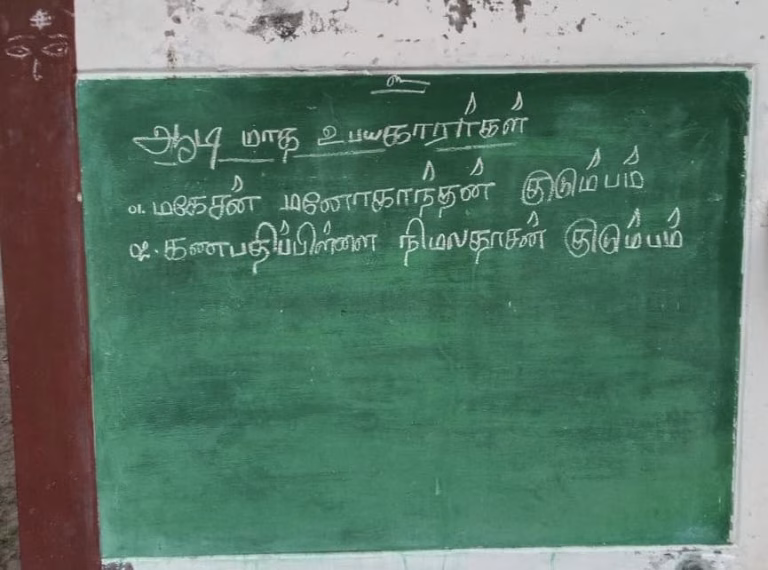 உ
ஆடி மாத உபயகாரர்கள்
௧. மகேசன் மனோகாந்தன் குடும்பம்
௨. கணபதிப்பிள்ளை நிமலதாசன் குடும்பம்